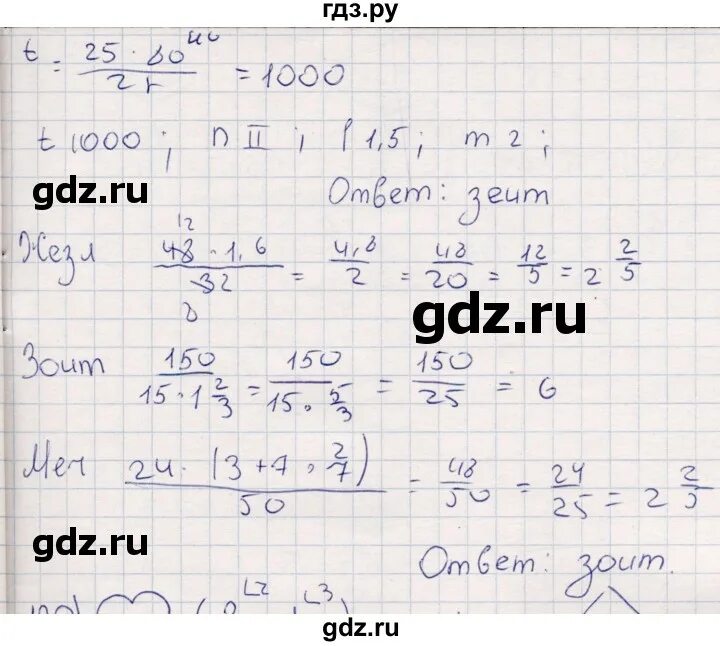 гдз.ру
t = 25 · 80 / 2 = 1000
t 1000; п II; р 1,5; т 2;
gdz.ru
Ответ: зеит
Жезл 48 · 1,6 / 32 = 4,8 / 2 = 48 / 20 = 12 / 5 = 2 2/5
12
gdz.ru
Зоит 150 / 15 · 1 2/3 = 150 / 15 · 5/3 = 150 / 25 = 6
Меч 24 · (3 + 7 · 2/7) / 50 = 48 / 50 = 24 / 25 = 2 2/5
gdz.ru
Ответ: зоит.
gdz.ru